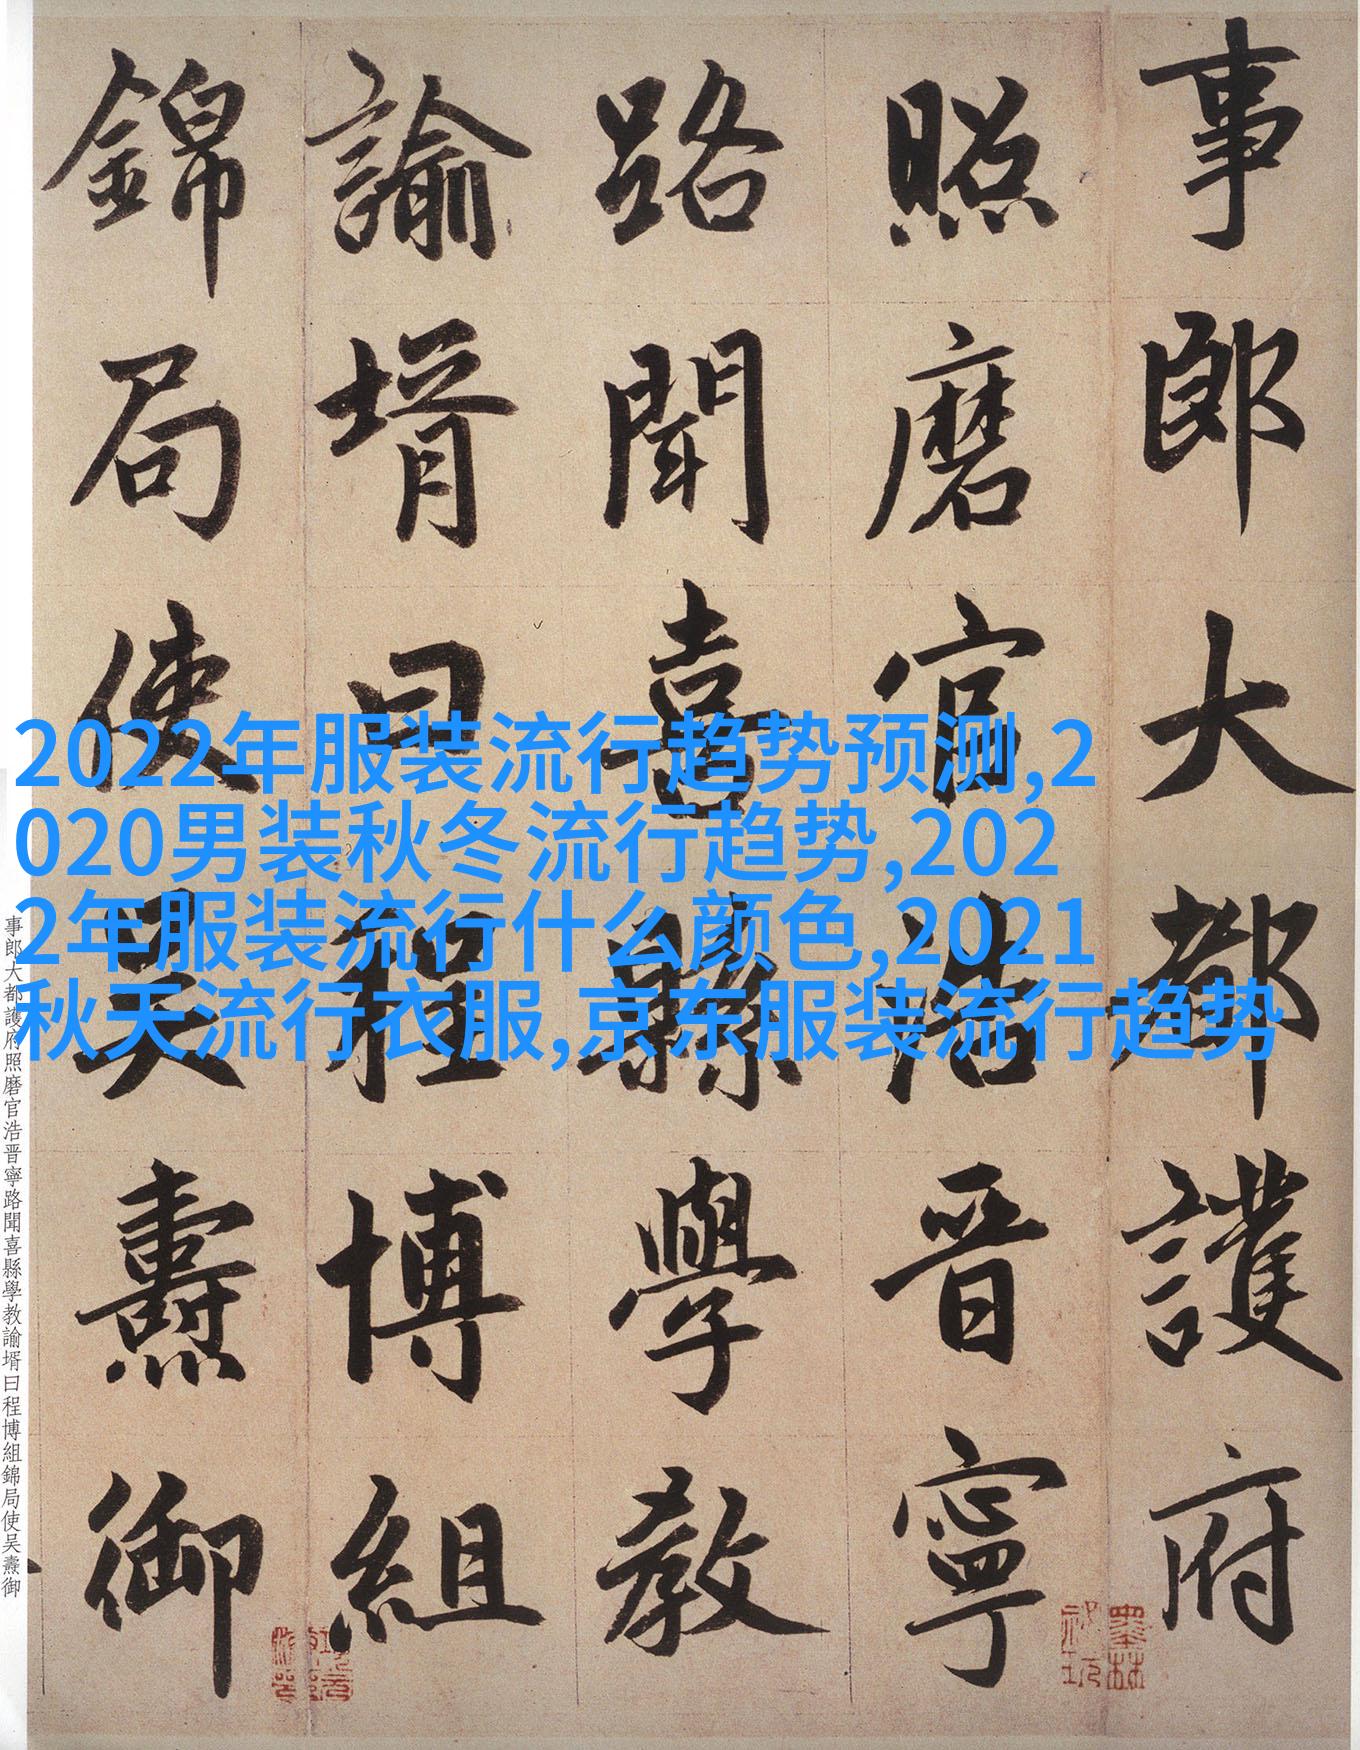 事郎大都護府
照磨官浩晋寧
路聞喜縣學教
諭壻曰程博組
錦局使吴燾御
2022年服装流行趋势预测,2
020男装秋冬流行趋势,202
2年服装流行什么颜色,2021
秋天流行衣服,京东服装流行趋势
事郎大都護府照磨官浩晋寧路聞喜縣學教諭壻曰程博組錦局使吴燾御